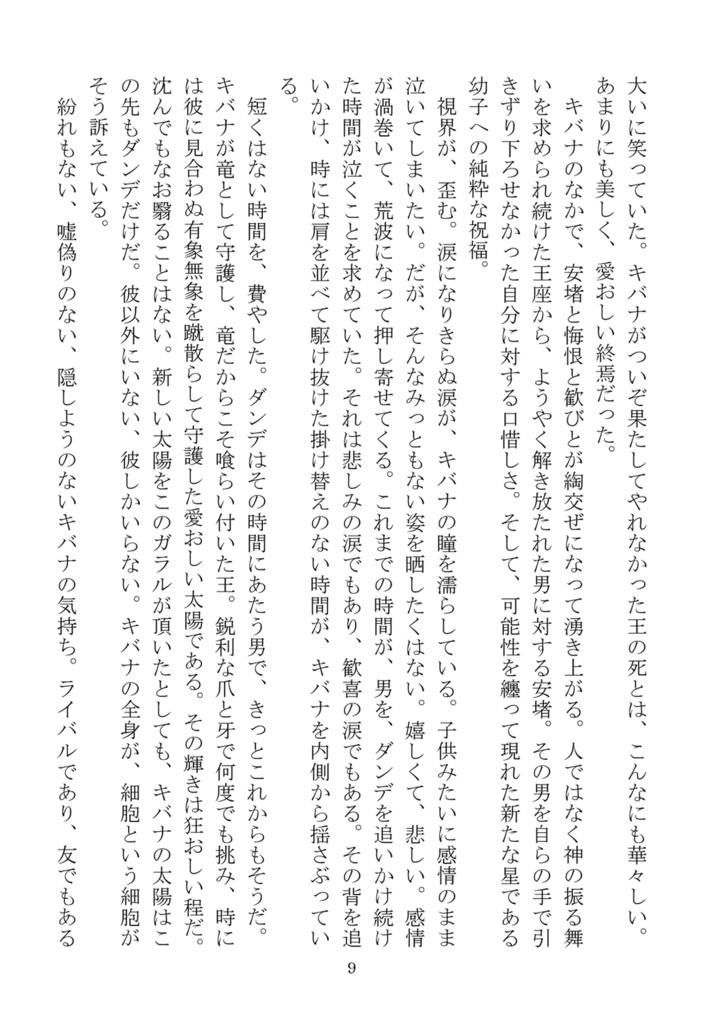 大いに笑っていた。キバナがついぞ果たしてやれなかった王の死とは、こんなにも華々しい。
あまりにも美しく、愛おしい終焉だった。
　キバナのなかで、安堵と悔恨と歓びとが綯交ぜになって湧き上がる。人ではなく神の振る舞
いを求められ続けた王座から、ようやく解き放たれた男に対する安堵。その男を自らの手で引
きずり下ろせなかった自分に対する口惜しさ。そして、可能性を纏って現れた新たな星である
幼子への純粋な祝福。
　視界が、歪む。涙になりきらぬ涙が、キバナの瞳を濡らしている。子供みたいに感情のまま
泣いてしまいたい。だが、そんなみっともない姿を晒したくはない。嬉しくて、悲しい。感情
が渦巻いて、荒波になって押し寄せてくる。これまでの時間が、男を、ダンデを追いかけ続け
た時間が泣くことを求めていた。それは悲しみの涙でもあり、歓喜の涙でもある。その背を追
いかけ、時には肩を並べて駆け抜けた掛け替えのない時間が、キバナを内側から揺さぶってい
る。
　短くはない時間を、費やした。ダンデはその時間にあたう男で、きっとこれからもそうだ。
キバナが竜として守護し、竜だからこそ喰らい付いた王。鋭利な爪と牙で何度でも挑み、時に
は彼に見合わぬ有象無象を蹴散らして守護した愛おしい太陽である。その輝きは狂おしい程だ。
沈んでもなお翳ることはない。新しい太陽をこのガラルが頂いたとしても、キバナの太陽はこ
の先もダンデだけだ。彼以外にいない、彼しかいらない。キバナの全身が、細胞という細胞が
そう訴えている。
　紛れもない、嘘偽りのない、隠しようのないキバナの気持ち。ライバルであり、友でもある
9